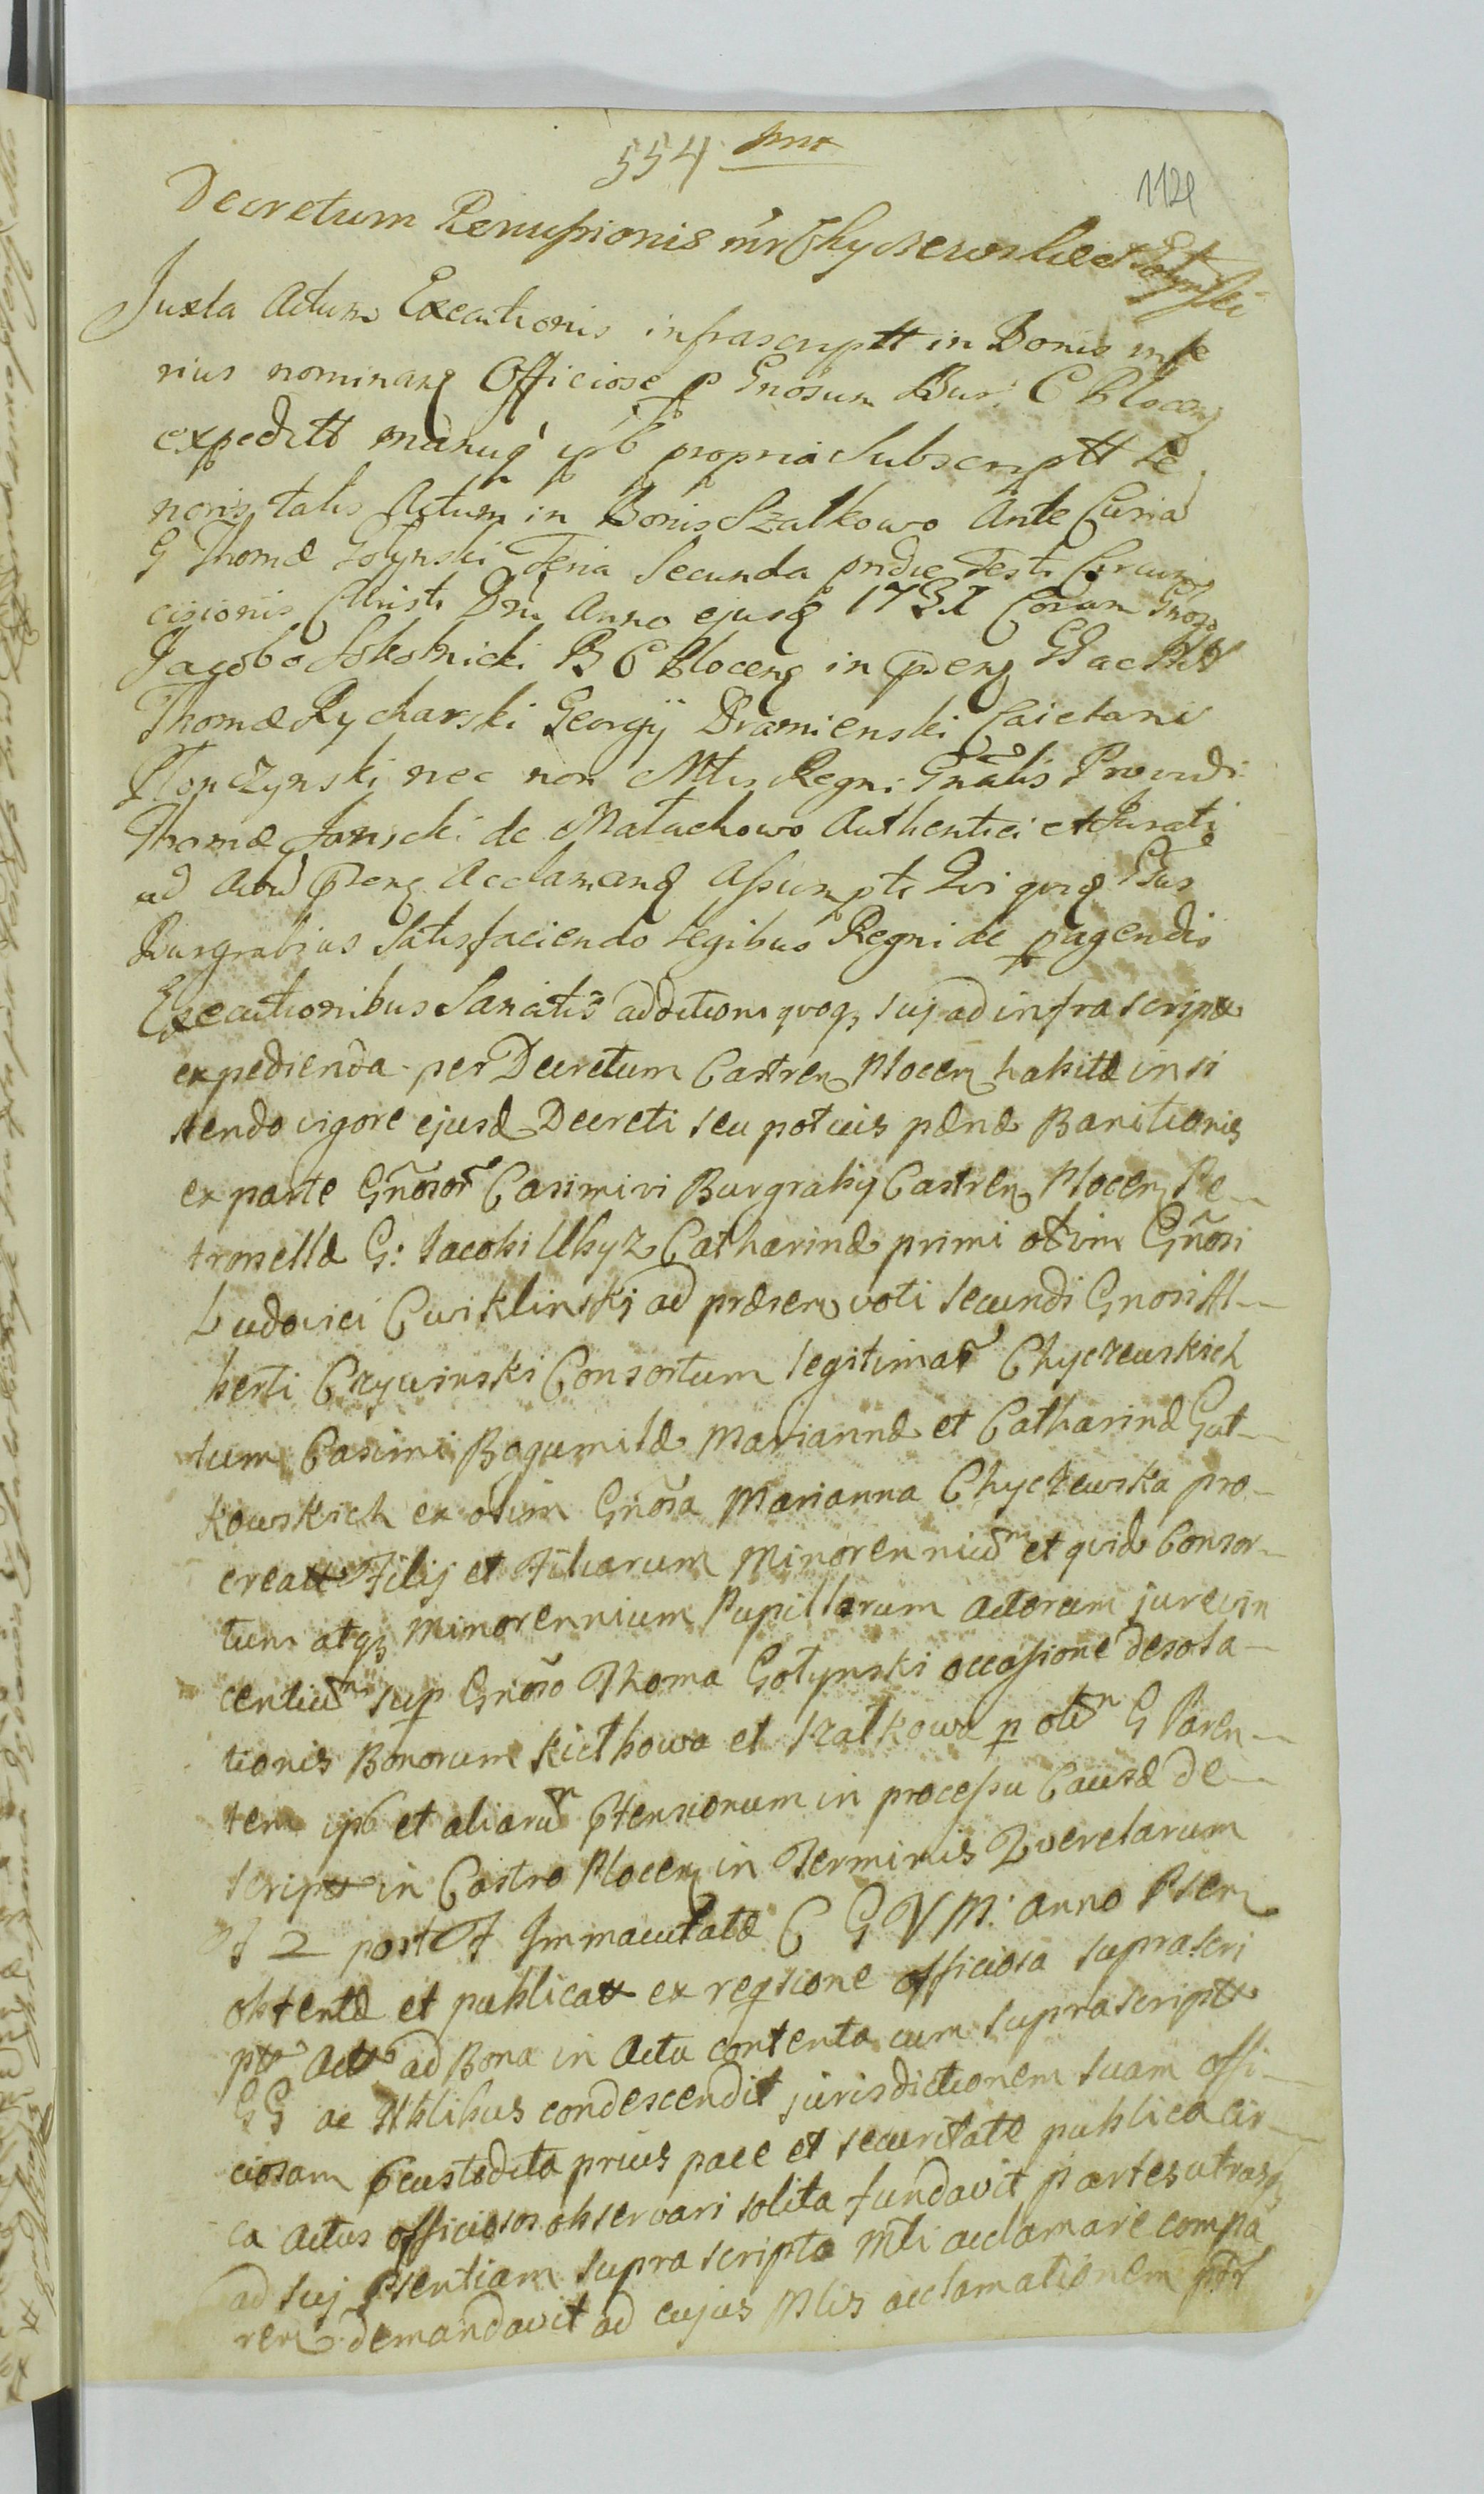 554
1121
Decretum Remissionis inr Chyczewskie et Gołynski
Juxta Actum Executionis infrascriptt in Bonis infe
rius nominanq Officiose p Gnosum Bur: C Plocenq
expeditt manuq ipb propria Subscriptt te
noris talis Actum in Bonis Szalkowo Ante Curiã
G Thomæ Gołynski Feria Secunda pridie Festi Circum
cisionis Christi Dni Anno ejusq 1731 Coram Gnoso
Jacobo Sokolnicki B C Plocenq in Psenq GG ac
Thomæ Rycharski Georgij Dramienski Caietani
Płonczynski nec non Mtis Regni Gnalis Providi
Thomæ Janicki de Małachowo Authentici et Jurati
ad Actũ Psenq Acclamanq Assumpti Qui quiq Gsus
Burgrabius Satisfaciendo legibus Regni de pagendis
Executionibus Sancitis additioni quoq suj ad infra script
expedienda per Decretum Castren Plocen habitæ insi
stendo vigore ejusd Decreti seu potius pænæ Banitionis
ex parte Gñosor Casimiri Burgrabij Castren Plocen Pe-
tronellæ G: Jacobi Ubyz Catharinæ primi olim Gñosi
Ludovici Cwiklinskj ad præsen voti secundi Gnosi Al-
berti Czywinski Consortum legitimar Chyczewskich
tum Casimi Bogumilæ Mariannæ et Catharinæ Gut-
kowskich ex olim Gnosa Marianna Chyczewska pro-
creatt Filij et Filiarum Minorenniũm et quid Consor-
tum atq Minorennium Pupillorum Actorum jurevin
centiũm sup Gnoso Thoma Gołynski occasione desola-
tionis Bonorum Kiełbowo et Szałkowo p olim G Paren-
tem ipb et aliarũm Ptensionum in processu Causæ de-
script in Castro Plocen in Terminis Querelarum
F 2 post F Immaculatæ C G V M: anno Psen
obtentæ et publicatt ex reqsicione officiosa suprascri
ptt Actt ad Bona in Actu contenta cum suprascriptt
GG ac Nblibus condescendit jurisdictionem suam offi-
ciosam Pcustodita prius pace et securitate publica cir-
ca Actus officiosos observari solita fundavit partes utrasq
ad suj Psentiam supra scripto Mli acclamare compa
rere demandavit ad cujus Mlis acclamationem